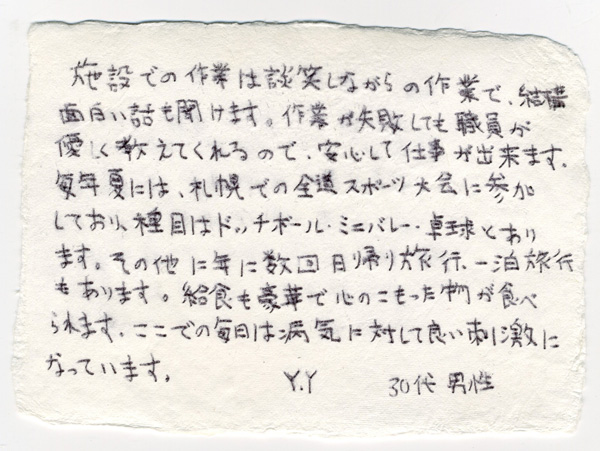 施設での作業は談笑しながらの作業で、結構
面白い話も聞けます。作業が失敗しても職員が
優しく教えてくれるので、安心して仕事が出来ます。
毎年夏には、札幌での全道スポーツ大会に参加
しており、種目はドッチボール・ミニバレー・卓球とあり
ます。その他に年に数回日帰り旅行、一泊旅行
もあります。給食も豪華で心のこもった物が食べ
られます。ここでの毎日は病気に対して良い刺激に
なっています。
Y.Y 30代 男性